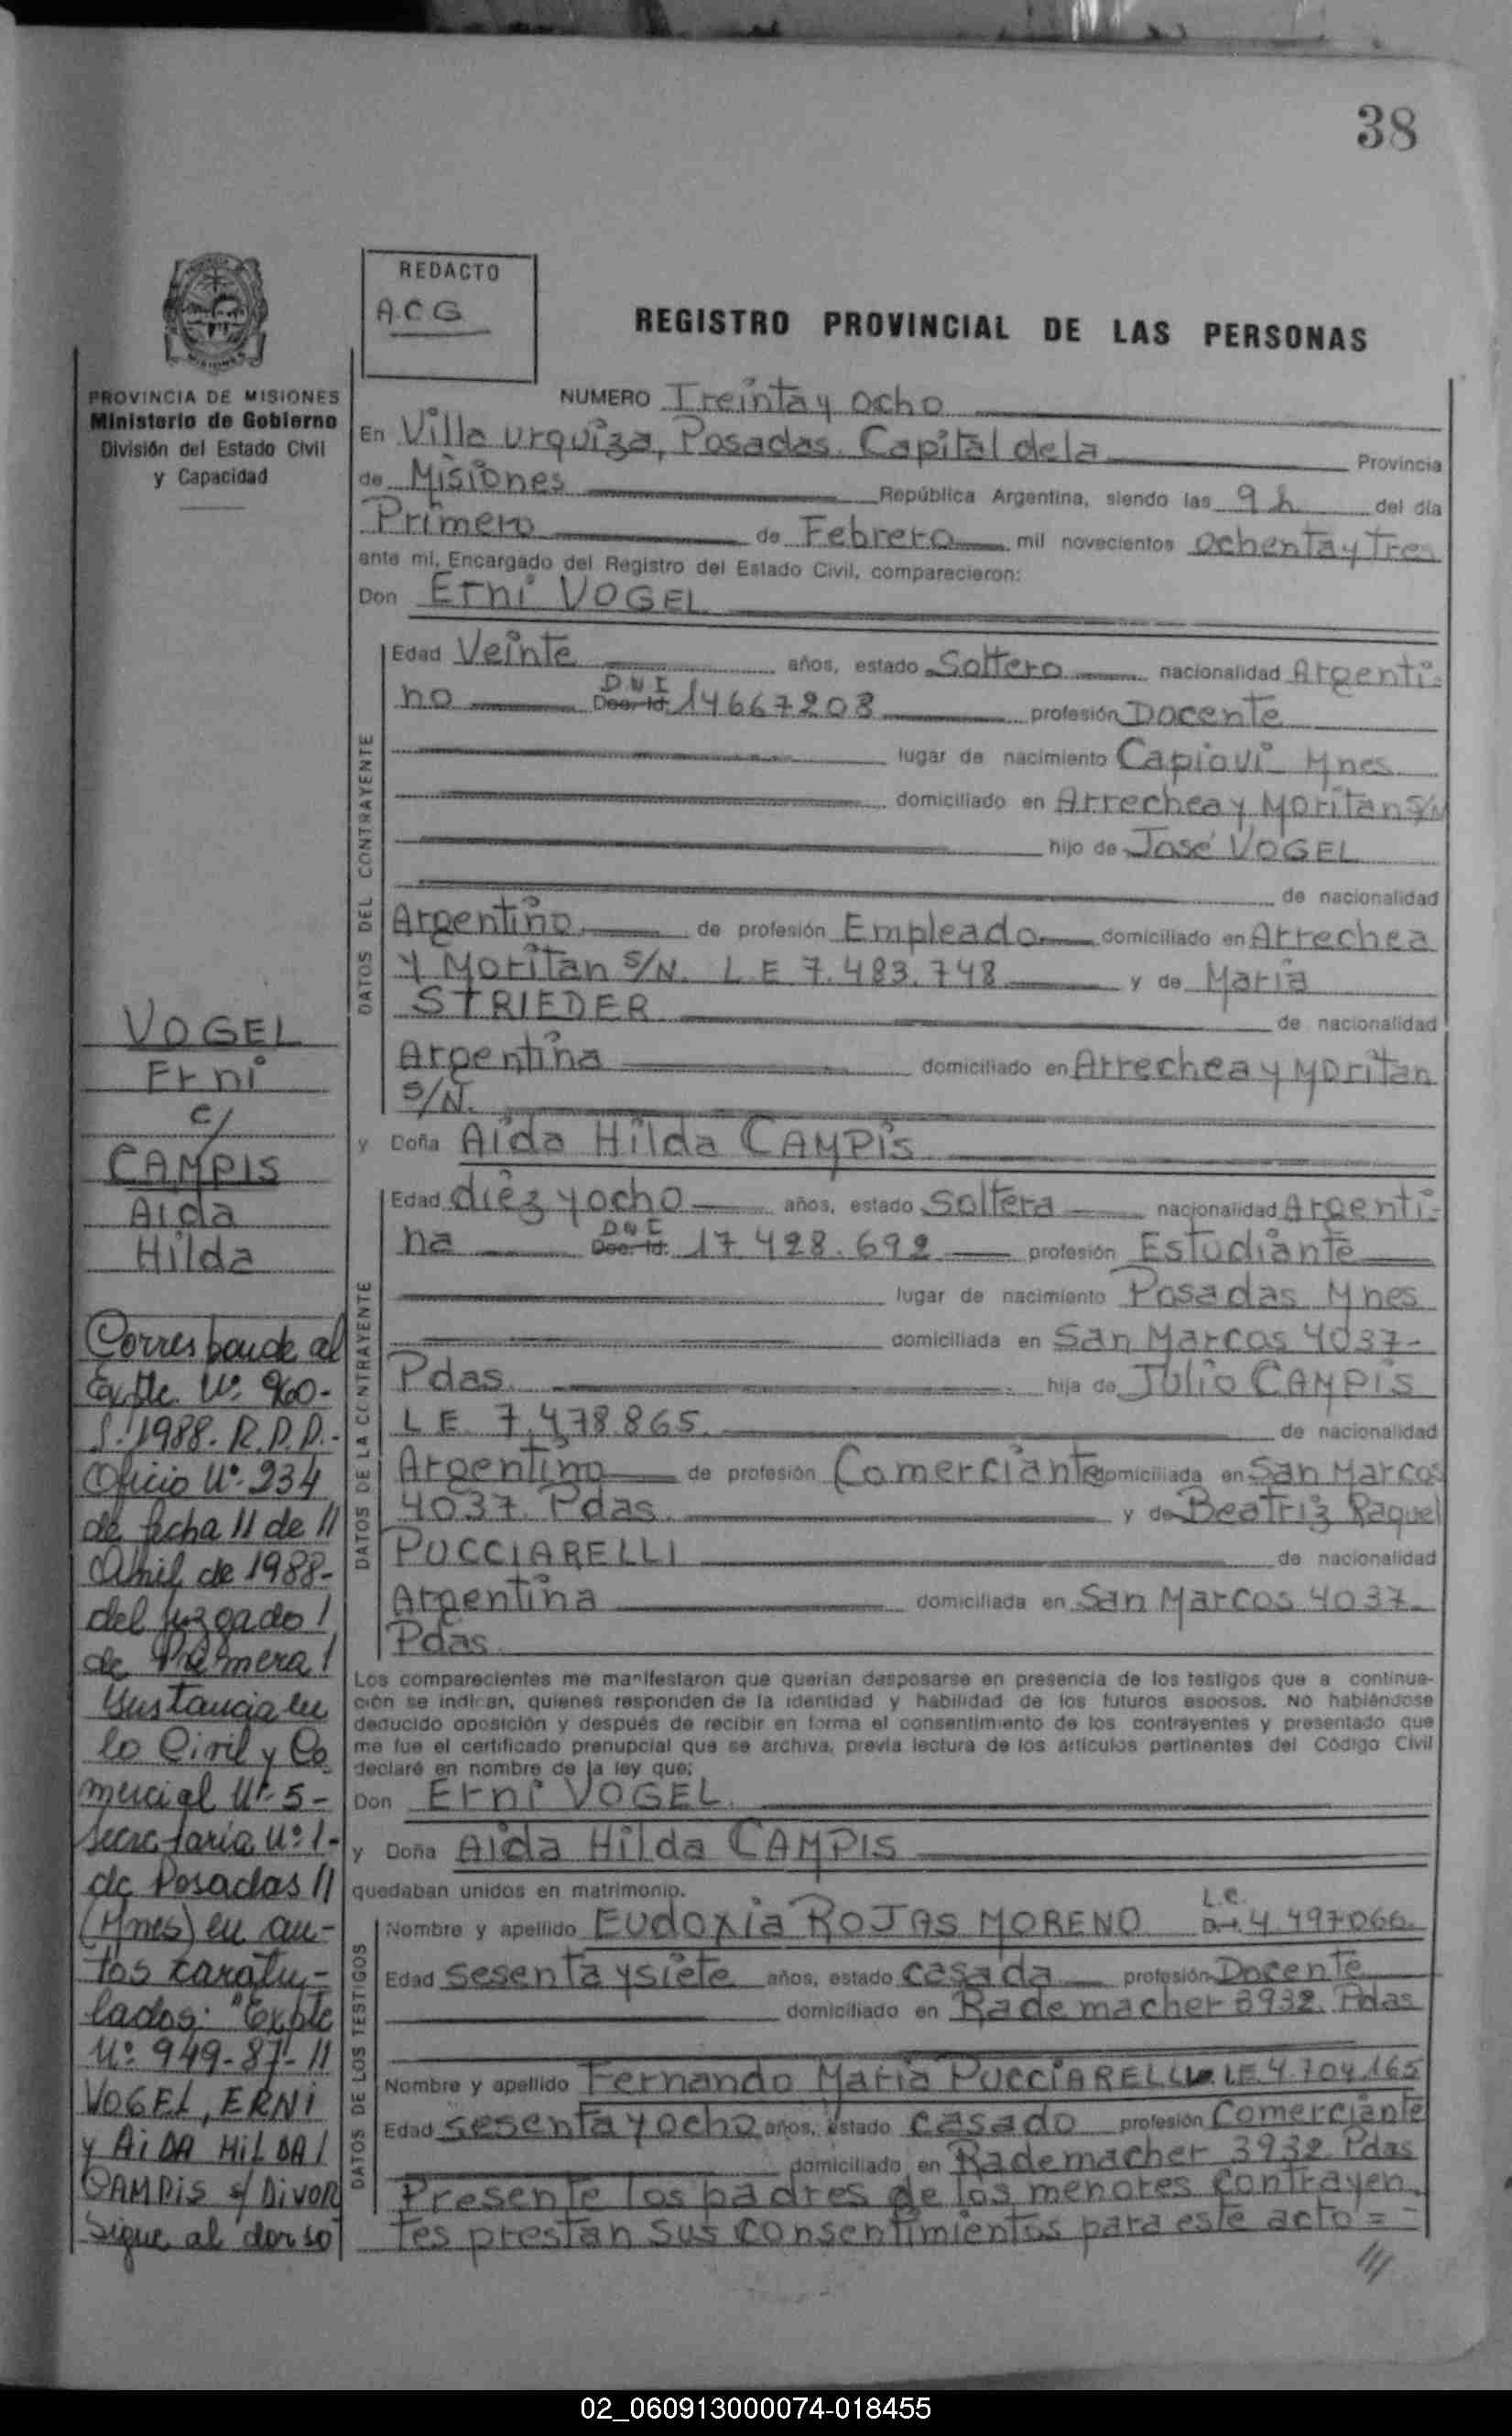 38
REDACTO
A.C.G
REGISTRO PROVINCIAL DE LAS PERSONAS
MISIONES
PROVINCIA DE MISIONES
Ministerio de Gobierno
División del Estado Civil
y Capacidad
NUMERO Treinta y ocho
En Villa Urquiza, Posadas. Capital de la Provincia
de Misiones República Argentina, siendo las 9 h del día
Primero de Febrero mil novecientos ochenta y Tres
ante mi, Encargado del Registro del Estado Civil, comparecieron:
Don Erni VOGEL
DATOS DEL CONTRAYENTE
Edad Veinte años, estado Soltero nacionalidad Argenti-
no D N I Doc. Id. 14667208 profesión Docente
lugar de nacimiento Capiovi Mnes
domiciliado en Arrechea y Moritan S/N
hijo de José VOGEL
de nacionalidad
Argentino de profesión Empleado domiciliado en Arrechea
y Moritan S/N. L.E 7.483.748 y de Maria
STRIEDER de nacionalidad
Argentina domiciliado en Arrechea y Moritan
S/N.
y Doña Aida Hilda CAMPIS
DATOS DE LA CONTRAYENTE
Edad diez y ocho años, estado Soltera nacionalidad Argenti-
na D N I Doc. Id. 17 428.692 profesión Estudiante
lugar de nacimiento Posadas Mnes
domiciliada en San Marcos 4037-
Pdas. hija de Julio CAMPIS
L E. 7.478.865. de nacionalidad
Argentino de profesión Comerciante domiciliada en San Marcos
4037. Pdas. y de Beatriz Raquel
PUCCIARELLI de nacionalidad
Argentina domiciliada en San Marcos 4037-
Pdas.
Los comparecientes me manifestaron que querían desposarse en presencia de los testigos que a continua-
ción se indican, quienes responden de la identidad y habilidad de los futuros esposos. No habiéndose
deducido oposición y después de recibir en forma el consentimiento de los contrayentes y presentado que
me fue el certificado prenupcial que se archiva, previa lectura de los artículos pertinentes del Código Civil
declaré en nombre de la ley que;
Don Erni VOGEL.
y Doña Aida Hilda CAMPIS
quedaban unidos en matrimonio.
DATOS DE LOS TESTIGOS
Nombre y apellido Eudoxia ROJAS MORENO L.C. 4.497066.
Edad sesenta y siete años, estado casada profesión Docente
domiciliado en Rademacher 3932. Pdas
Nombre y apellido Fernando Maria PUCCIARELLI LE 4.704.165
Edad sesenta y ocho años, estado casado profesión Comerciante
domiciliado en Rademacher 3932 Pdas
Presente los padres de los menores contrayen,
tes prestan sus consentimientos para este acto = -
VOGEL
Erni
c/
CAMPIS
Aida
Hilda
Corresponde al
Expte. Nº 960-
S-1988. R.P.P.-
Oficio Nº 234
de fecha 11 de //
Abril de 1988-
del juzgado /
de Primera /
Instancia en
lo Civil y Co
mercial Nº 5-
Secretaria Nº 1-
de Posadas //
(Mnes) en au-
tos caratu-
lados: "Expte
Nº 949-87-//
VOGEL, ERNI
y AIDA HILDA /
CAMPIS s/ DIVOR
Sigue al dorso
02_060913000074-018455